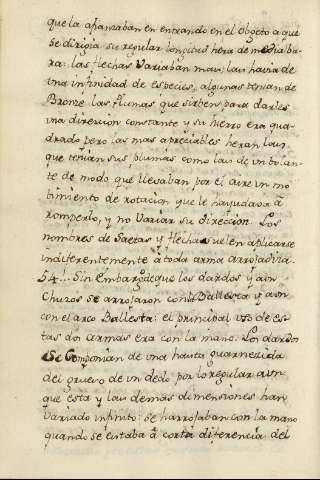 que la afianzaban en entrando en el Objeto a que
se dirigia: su regular longitud hera de media ba-
ra: las flechas Variaban mas; las havia de
una infinidad de especies, algunas tenian de
Bronze las plumas que sirben para darles
una direccion constante y su hierro era qua-
drado pero las mas apreciables heran las
que tenian sus plumas como las de un bolan-
te de modo que llevaban por el aire un mo
bimiento de rotacion que le hayudaba á
romperlo, y no Variar su direccion. Los
nombres de Saetas y flechas suelen aplicarse
indiferentemente á toda arma arrojadiza.
54... Sin Embargo de que los dardos y aun
Chuzos se arrojaron con la Ballesta y aun
con el arco Ballesta: el principal uso de es-
tas dos armas era con la mano. Los dardos
Se Componian de una hasta guarnezida
del grueso de un dedo por lo regular aun
que esta y las demas dimensiones han
Variado infinito: se harrojaban con la mano
quando se estaba á corta diferencia del